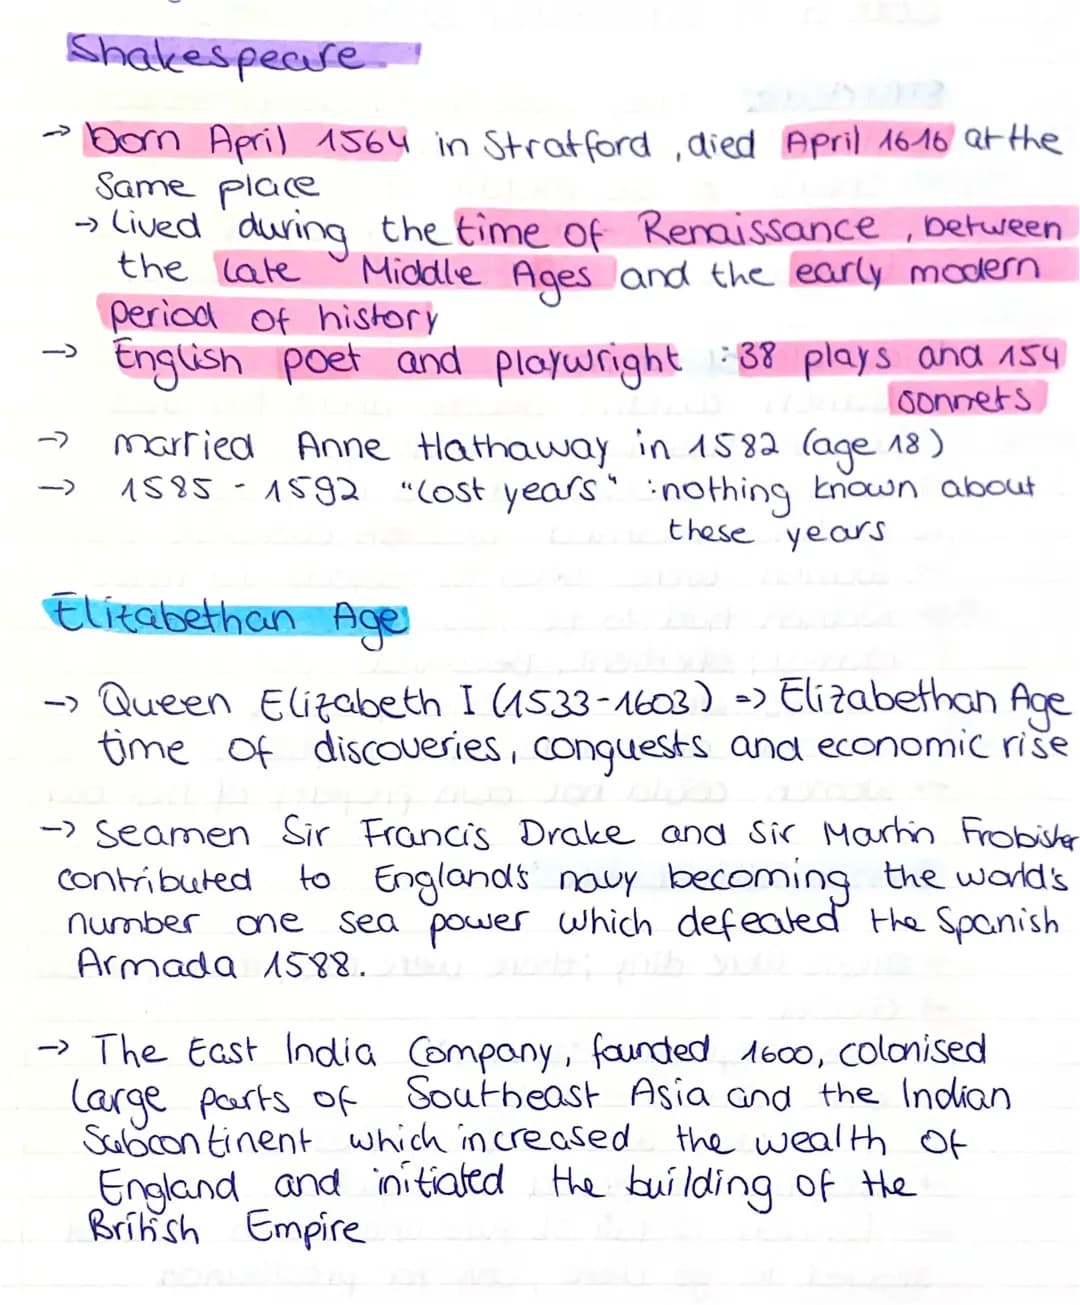 Shakespeare
→ born April 1564 in Stratford, died April 1616 at the
same place
→ lived during the time of Renaissance, between
the late Middle Ages and the early modern
period of history
→ English poet and playwright : 38 plays and 154
sonnets
→ married Anne Hathaway in 1582 (age 18)
→ 1585 - 1592 "Lost years" : nothing known about
these years
Elizabethan Age:
→ Queen Elizabeth I (1533-1603) => Elizabethan Age
time of discoveries, conquests and economic rise
→ Seamen Sir Francis Drake and Sir Martin Frobisher
contributed to England's navy becoming the world's
number one sea power which defeated the Spanish
Armada 1588.
→ The East India Company, founded 1600, colonised
large parts of Southeast Asia and the Indian
Subcontinent which increased the wealth of
England and initiated the building of the
British Empire